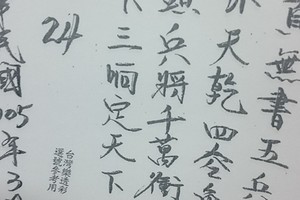 無書五兵
天乾四
兵將千萬衝
下三個定天下
24
台灣樂透彩
選號參考用
民國105年3